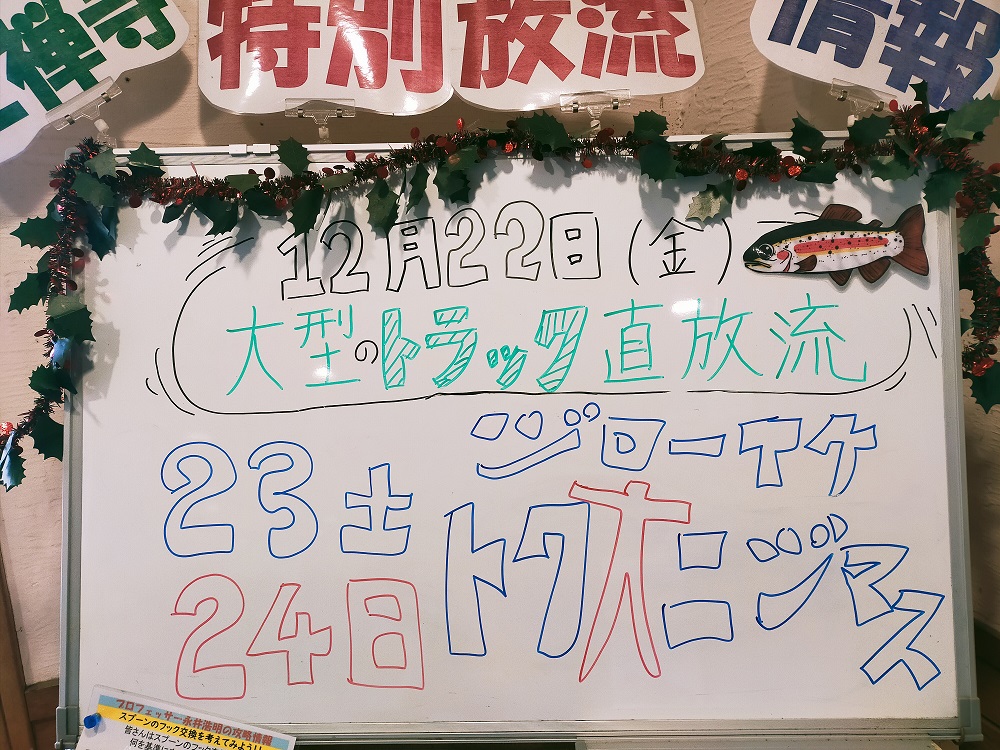 禅寺 特別放流 情報
12月22日(金)
大型のトラック直放流
23土 ジローイケ
24日 トク大ニジマス
プロフェッサー永井浩明の攻略情報
スプーンのフック交換を考えてみよう!!
皆さんはスプーンのフック
何を基準に